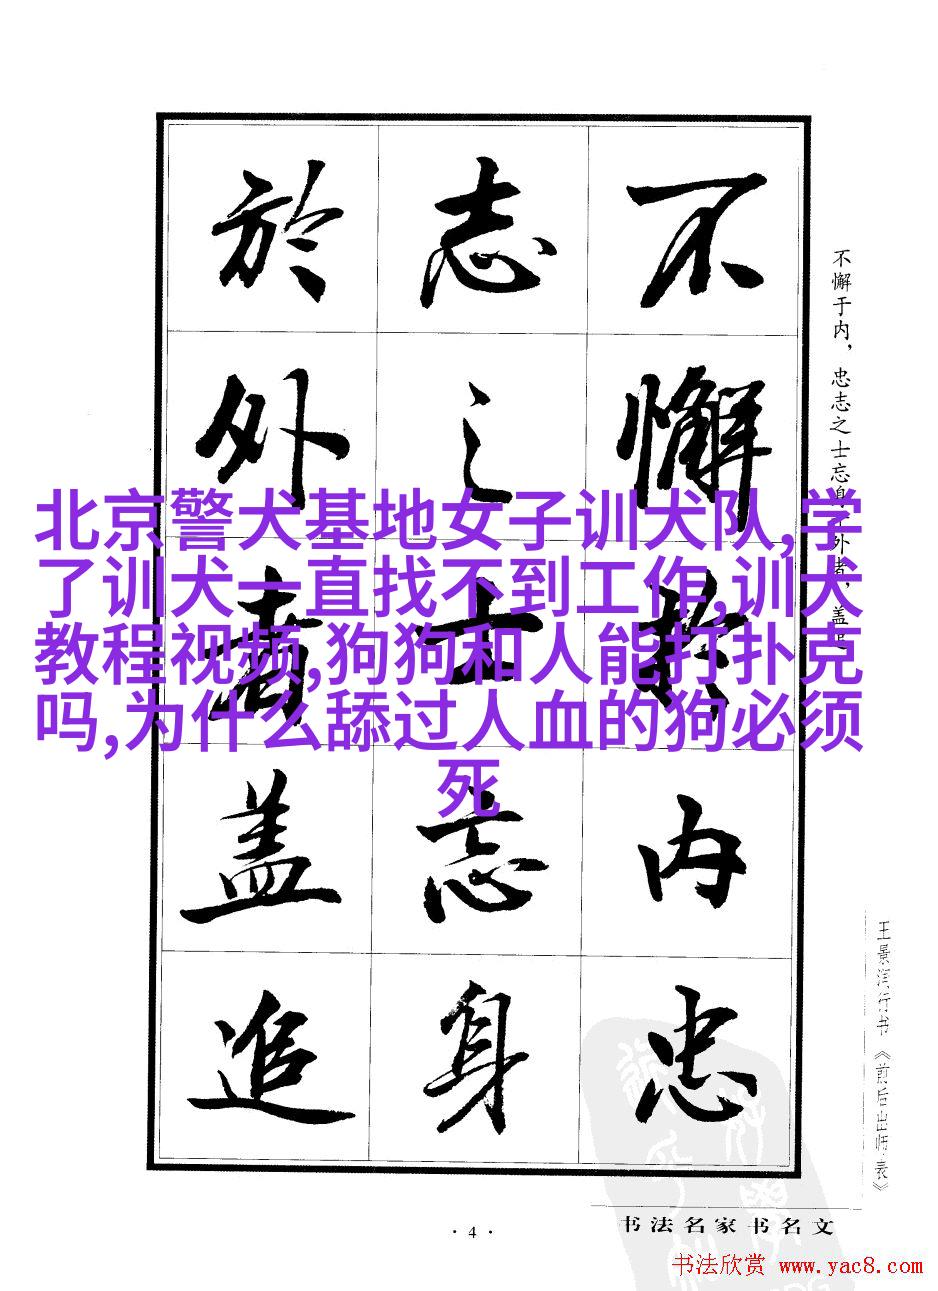 不懈於内忠
志之士忘身
於外者盖追
不懈于内，忠志之士忘身于外者，盖追
北京警犬基地女子训犬队,学
了训犬一直找不到工作,训犬
教程视频,狗狗和人能打扑克
吗,为什么舔过人血的狗必须
死
王景芬行书《前后出师表》
书法名家书名文
·4·
书法欣赏 www.yac8.com